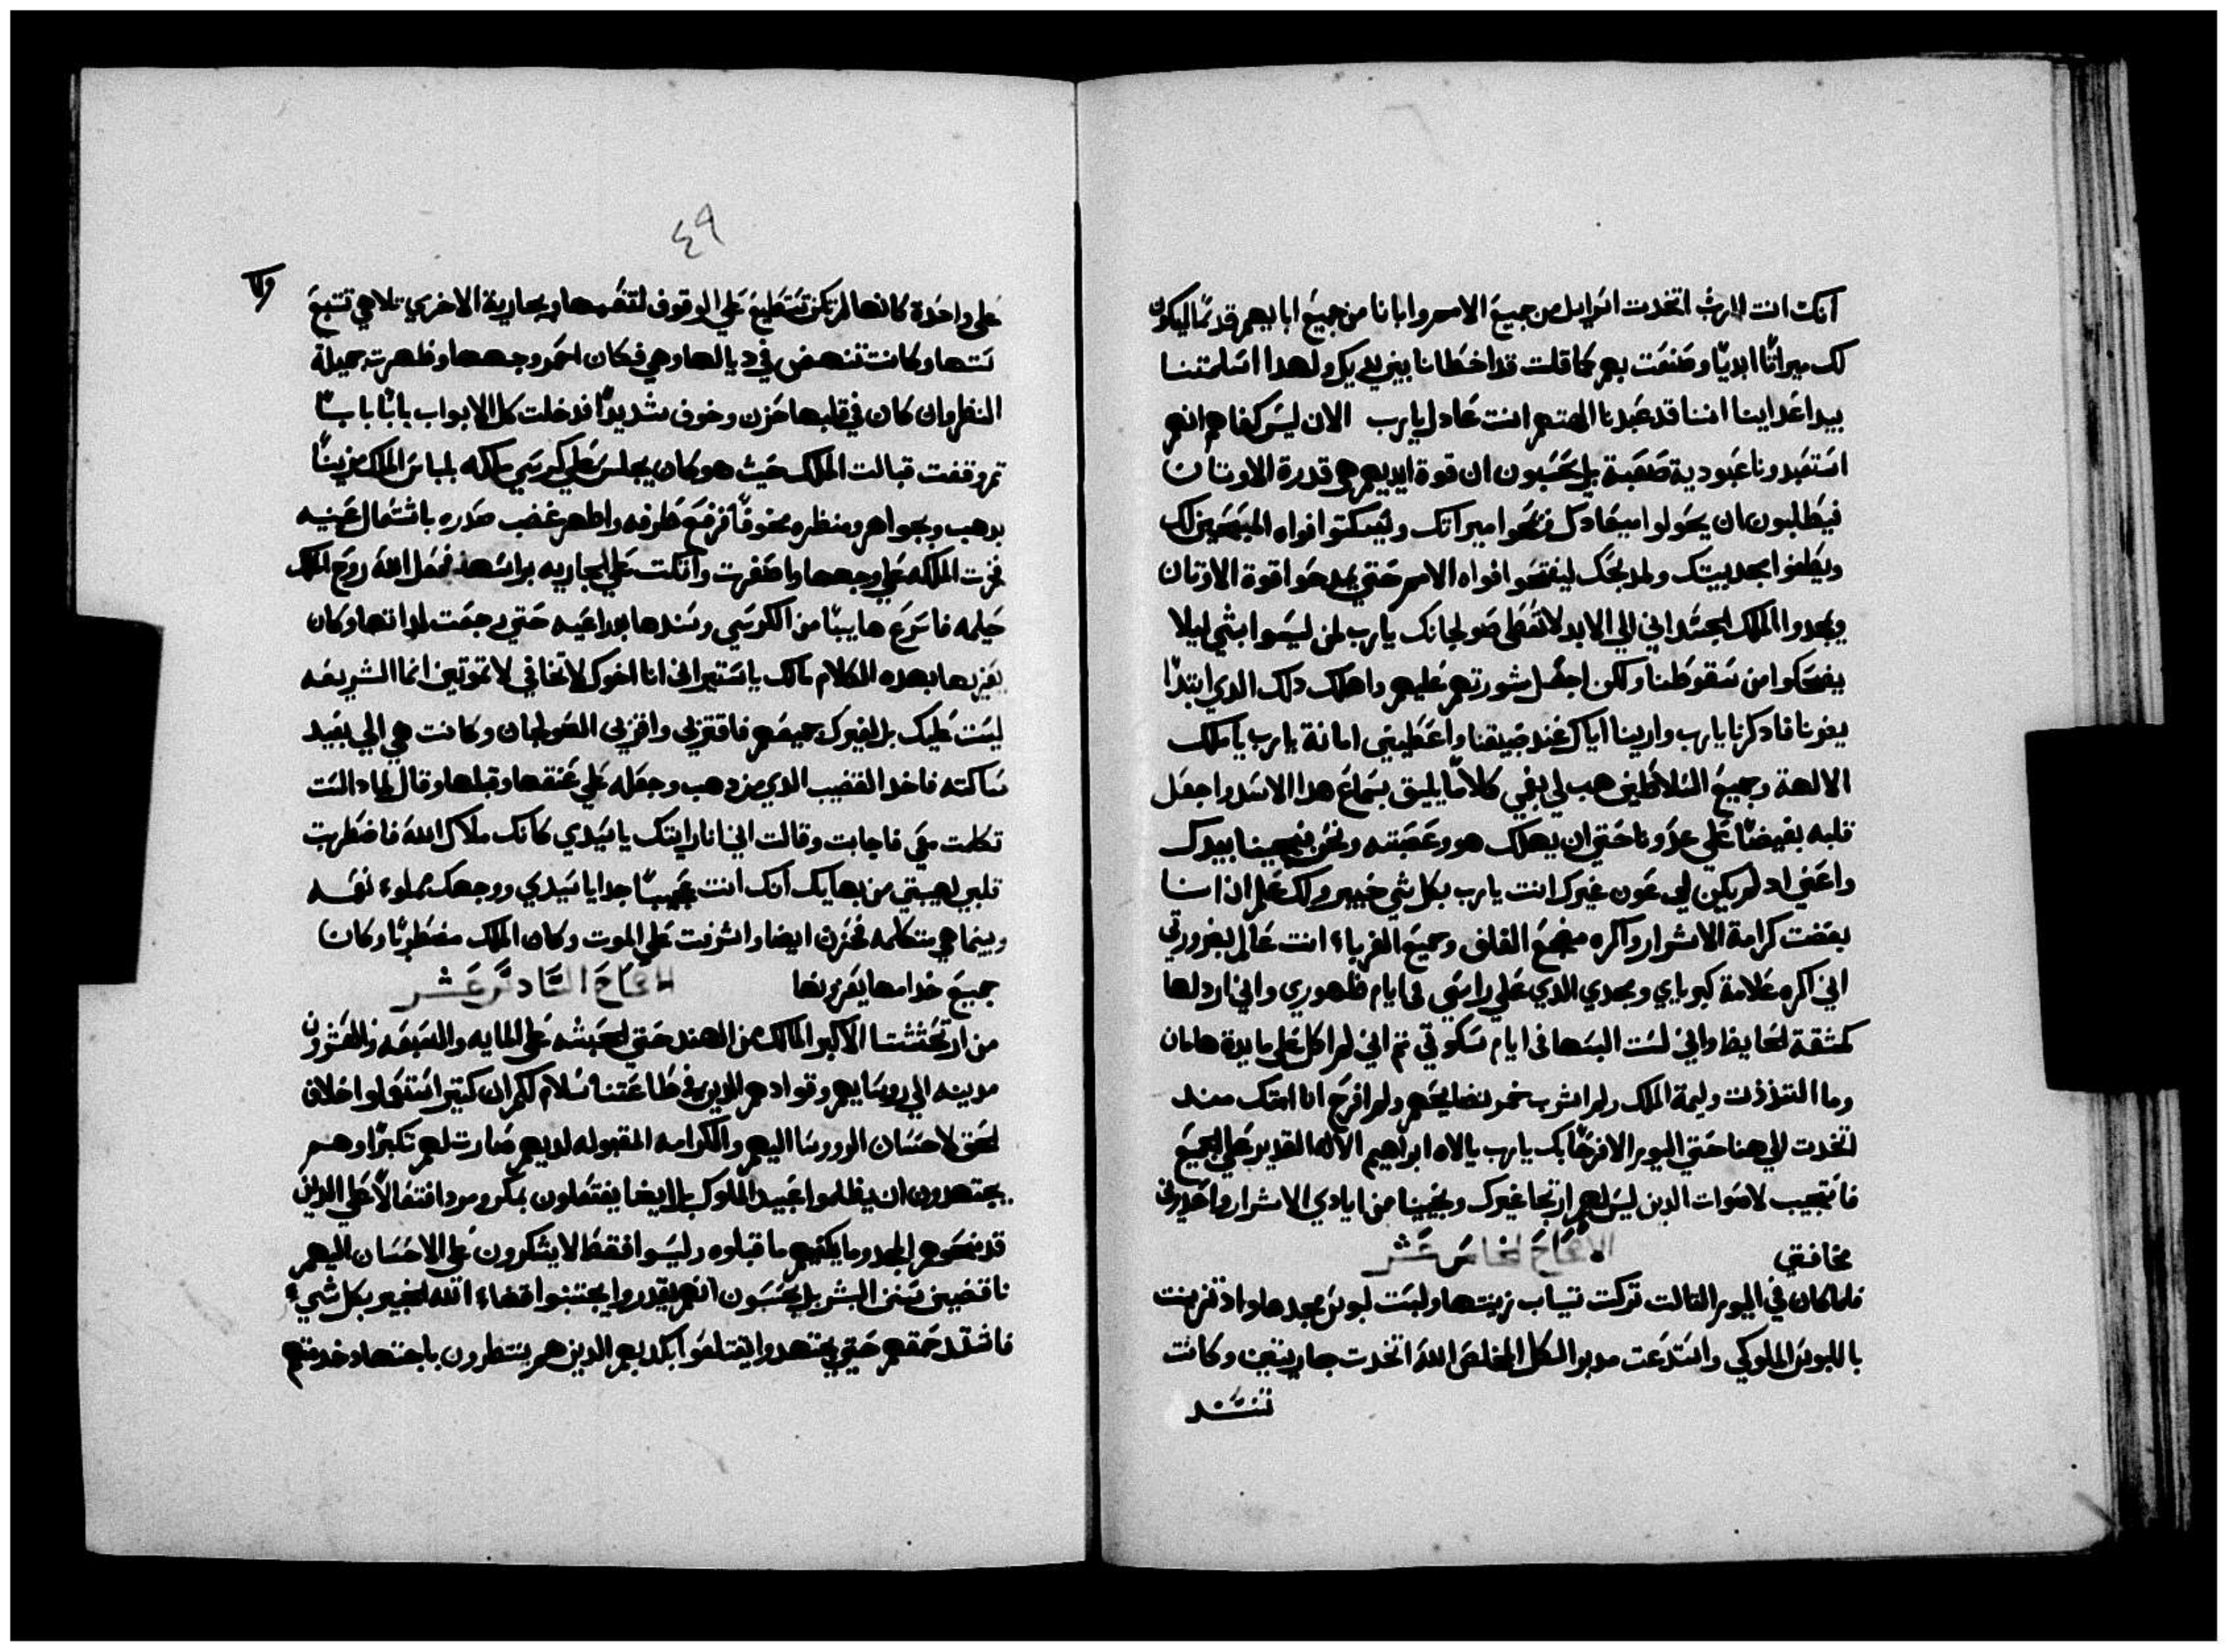 انك انت الرب اتخدت اسرايل من جميع الامم وابانا من جميع ابايهم قدمًا ليكون
لك ميراثًا ابديًا وصنعت بهم كما قلت قد اخطانا بين يديك ولهدا اسلمتنا
بيد اعداينا اننا قد عبدنا الهتهم انت عادل يا رب الان ليس كفاهم انهم
استعبدونا عبودية صعبة بل يحسبون ان قوة ايديهم هي قدرة الاوتان
فيطلبون ان يحولوا ميعادك ميراتك ويسكتوا افواه المسبحين لك
ويطفوا مجد بيتك ومدبحك ليفتحوا افواه الامم حتي يمدحوا قوة الاوتان
ويمجدوا الملك الجسداني الي الابد لا تعطي صولجانك يا رب لمن ليسوا بشي ليلا
يضحكوا من سقوطنا ولكن اجعل شورتهم عليهم واهلك دلك الدي ابتدا
بغونا فادكرنا يا رب وارينا اياك عند ضيقنا واعطيني امانة يا رب يا ملك
الالهة وجميع السلاطين هب لي بفمي كلامًا يليق بسماع هدا الاسد واجعل
قلبه بغيضًا علي عدونا حتي ان يهلك هو وعصبته ونحن بيدك
واعني اد لم يكن لي عون غيرك انت يا رب بكل شي خبير ولك علم انا
بغضت كرامة الاشرار واكره مضجع الغلف وجميع الغرباء انت عالم بضرورتي
اني اكره علامة كبرياي ومجدي الدي علي راسي في ايام ظهوري واني اردلها
كمثقة الحايض واني لست البسها في ايام سكوتي تم اني لم اكل علي مايدة هامان
وما التذذت وليمة الملك ولم اشرب خمر نضايحهم ولم افرح انا امتك مند
اتخدت الي هنا حتي اليوم الا فرحًا بك يا رب يا اله ابراهيم الاله القدير علي الجميع
فاستجيب لاصوات الدين ليس لهم ارتجا غيرك ونجينا من ايادي الاشرار
مخافتي الاصحاح الخامس عشر
فلما كان في اليوم التالت تركت تياب زينتها ولبست لبوس مجدها واد تزينت
باللبوس الملوكي واستدعت مدبر الكل المخلص الله اتخدت جاريتين وكانت
تستند
٤٩
علي واحدة كانها لم تكن تستطيع علي الوقوف والجارية الاخري تلاهي تتبع
ستها وكانت تنهض في ديالها وهي فكان احمر وجهها وظهرت جميلة
النظر وان كان في قلبها حزن وخوف شديدًا فدخلت كل الابواب بابًا بابًا
تم وقفت قبالت الملك حيث هو كان يجلس علي كرسي ملكه بلباس الملك مزينًا
بدهب وجواهر ومنظره مخوفًا فرفع طرفه واظهر غضب صدره باشتعال عينيه
فخرت الملكه علي وجهها واصفرت واتكت علي الجاريه براسها فحول الله روح الملك
حيلمه فاسرع هايبًا من الكرسي وسندها بدراعيه حتي رجعت لداتها وكان
يعزيها بهده الكلام مالك يا استير اني انا اخوك لا تخافي لا تموتين انما الشريعه
ليست عليك بل لغيرك جميعهم فاقتربي وافزي الصولجان وكانت هي الي بعيد
ساكته فاخد القضيب الدي من دهب وجعله علي عنقها وقبلها وقال لمادا لست
تكلمت معي فاجابت وقالت اني انا رايتك يا سيدي كانك ملاك الله فاضطرب
قلبي لهيبتي من بهايك انك انت عجيبًا جدا يا سيدي ووجهك مملوء نعمه
وبينما هي متكلمه فخرت ايضا واشرفت علي الموت وكان الملك مضطربًا وكان
جميع خدامها يعزونها الاصحاح السادس عشر
من ارتحشتا الاكبر المالك من الهند حتي الحبشه علي المايه والسبعه والعشرون
مدينه الي روسايهم وقوادهم الدين في طاعتنا سلام لكم ان كتير استعملوا خلاف
الحق لاحسان الرووسا اليهم والكرامه المقبوله لديهم صارت لهم تكبرًا وهم
يجتهدون ان يظلموا عبيد الملوك بل ايضا يفتعلون بمكر ومردا فتعالًا علي الدين
قد نحوهم المجد وما يكفيهم ما قبلوه وليسوا فقط لا يشكرون علي الاحسان اليهم
ناقضين سنن البشر بل يحسبون انهم يقدروا يجتنبوا قضاء الله الخبير بكل شيء
فاشتد حمقهم حتي يجتهدوا بكديهم الدين هم ينتظرون باجتهاد خدمتهم